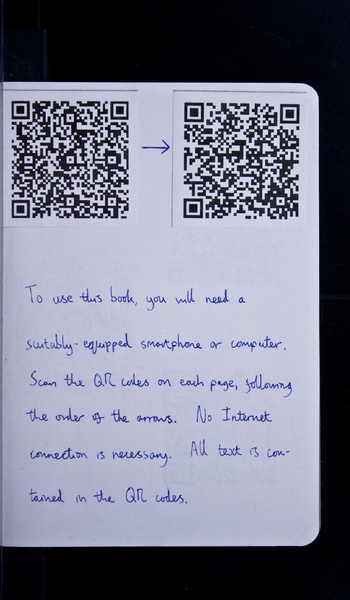 To use this book, you will need a
suitably-equipped smartphone or computer.
Scan the QR codes on each page, following
the order of the arrows. No Internet
connection is necessary. All text is con-
tained in the QR codes.